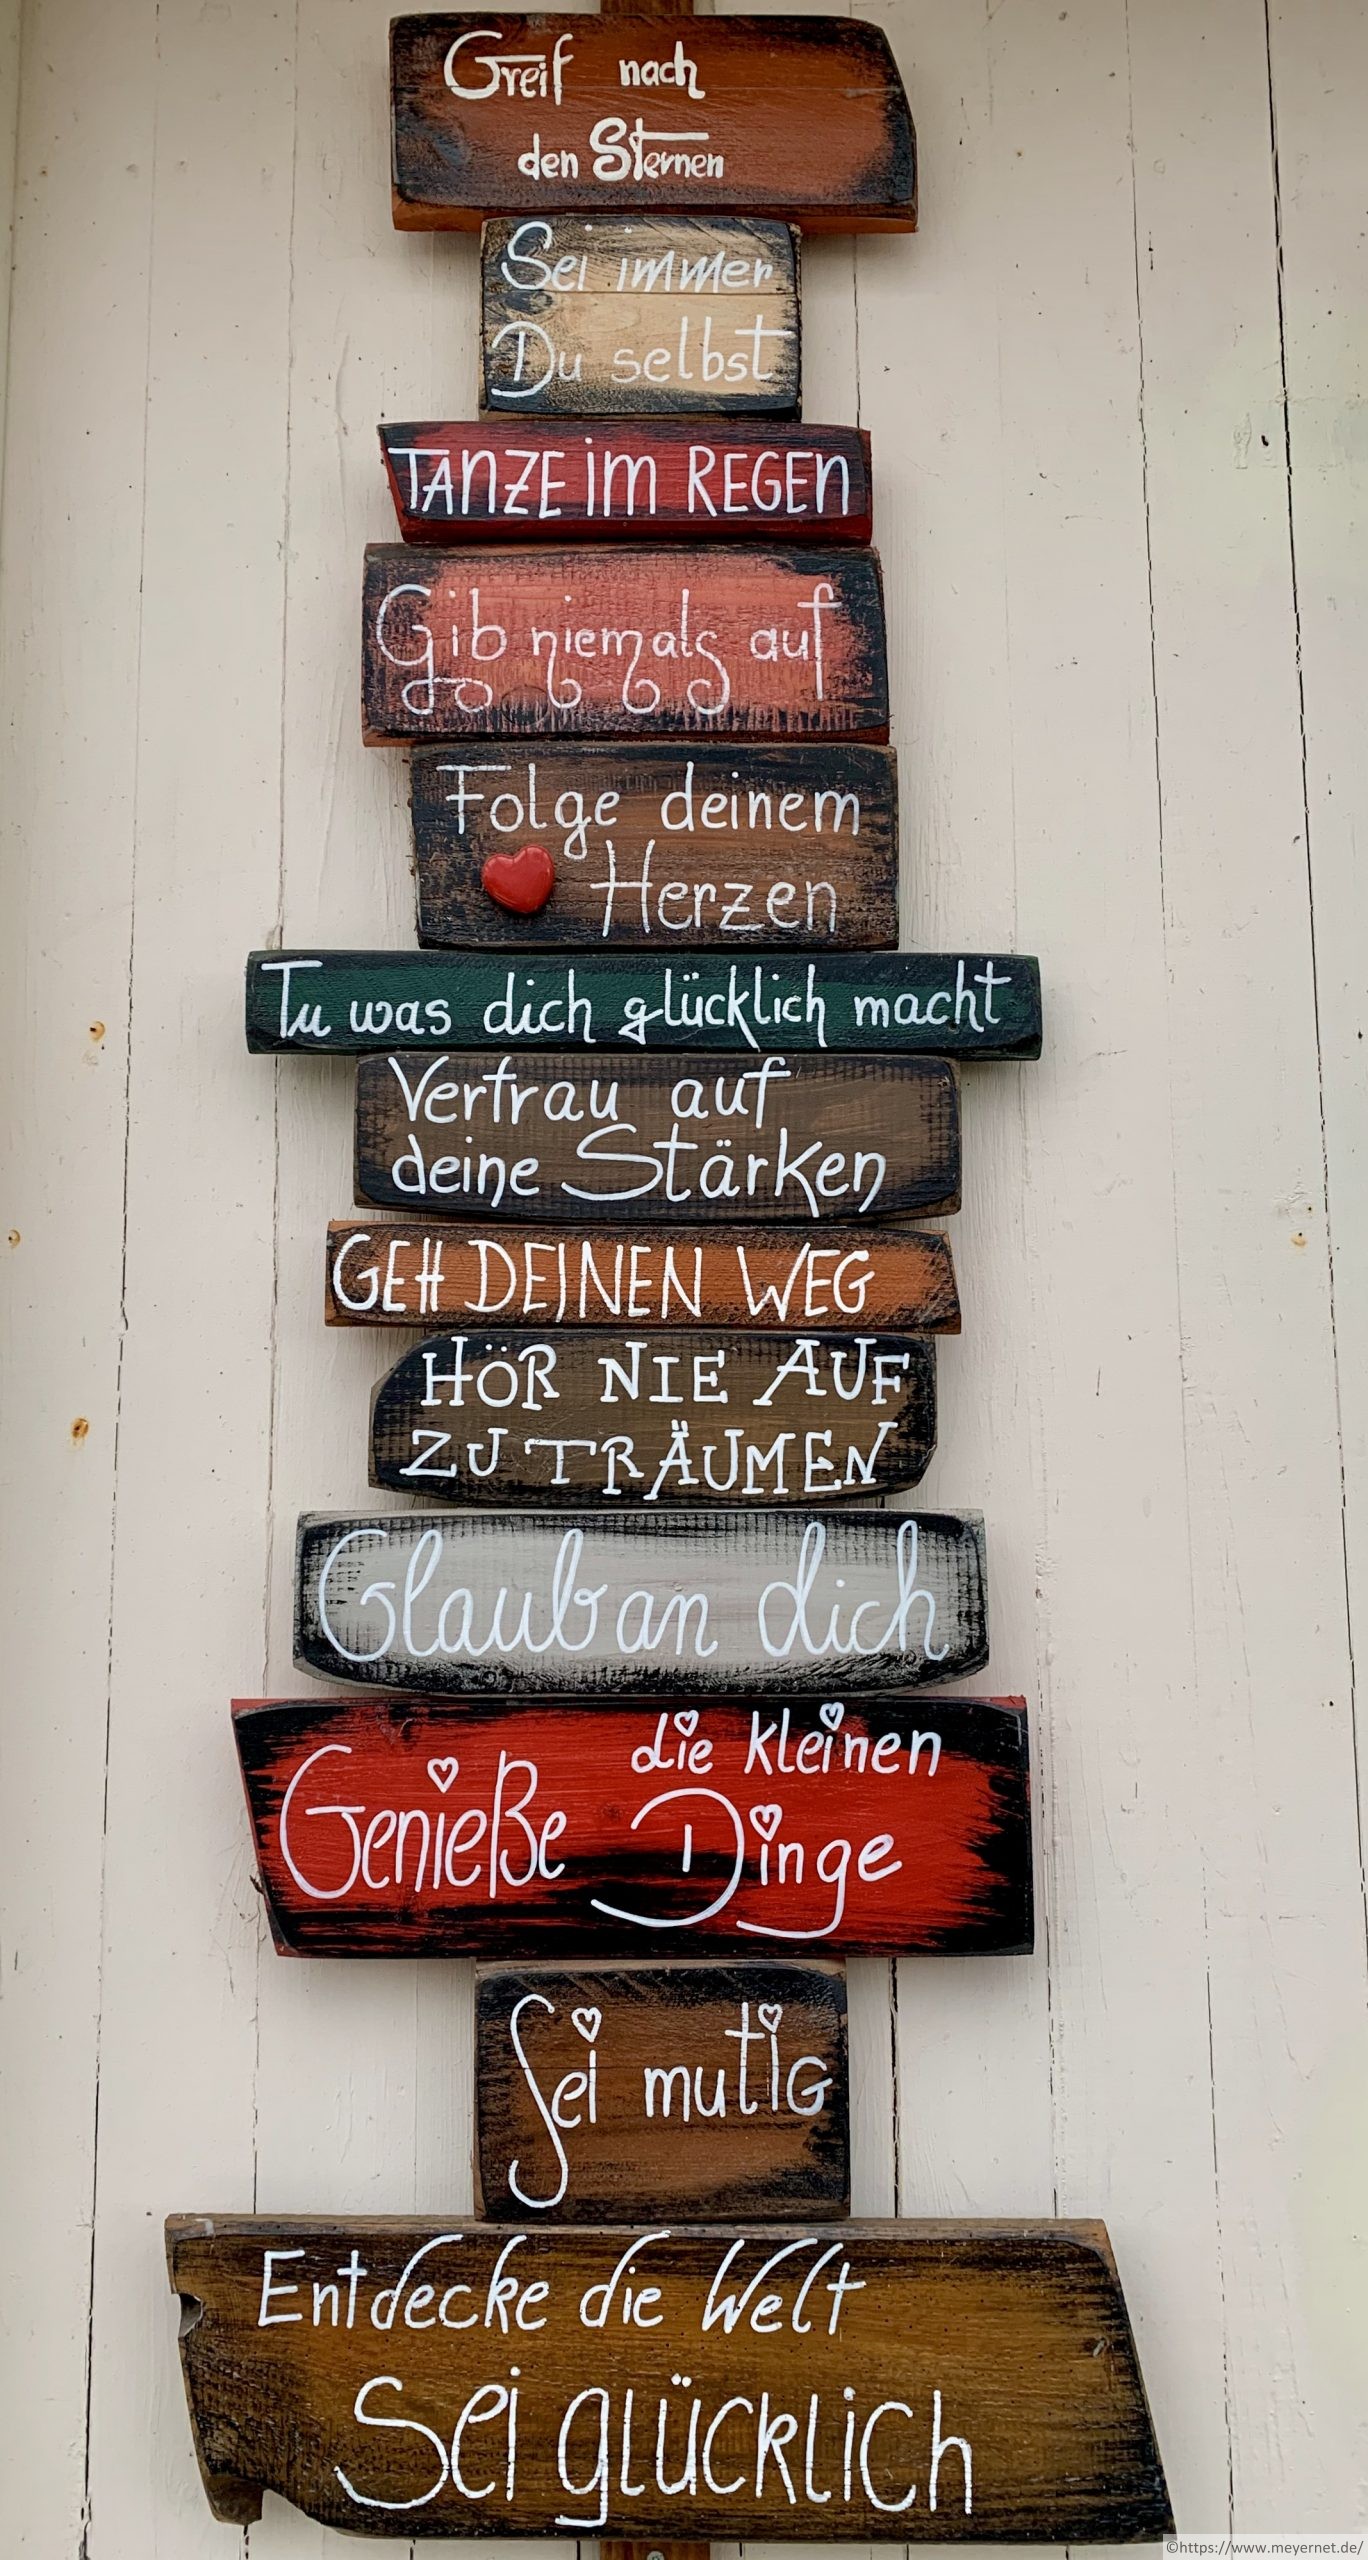 Greif nach
den Sternen
Sei immer
Du selbst
TANZE im REGEN
Gib niemals auf
Folge deinem
Herzen
Tu was dich glücklich macht
Vertrau auf
deine Stärken
GEH DEINEN WEG
HÖR NIE AUF
ZU TRÄUMEN
Glaub an dich
Genieße die kleinen
Dinge
Sei mutig
Entdecke die Welt
Sei glücklich
©https://www.meyernet.de/